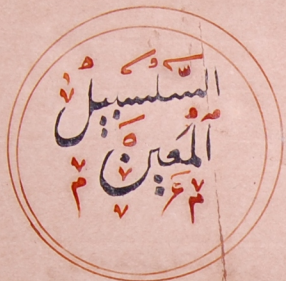 السلسبيل
المعين